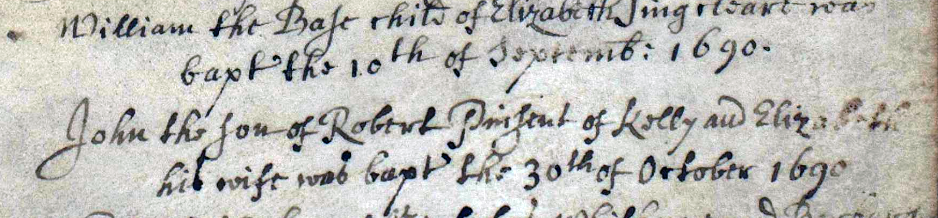 William the Base child of Elizabeth was
bapt the 10th of Septemb: 1690.
John the son of Robert of Kelly and Elizabeth
his wife was bapt the 30th of October 1690